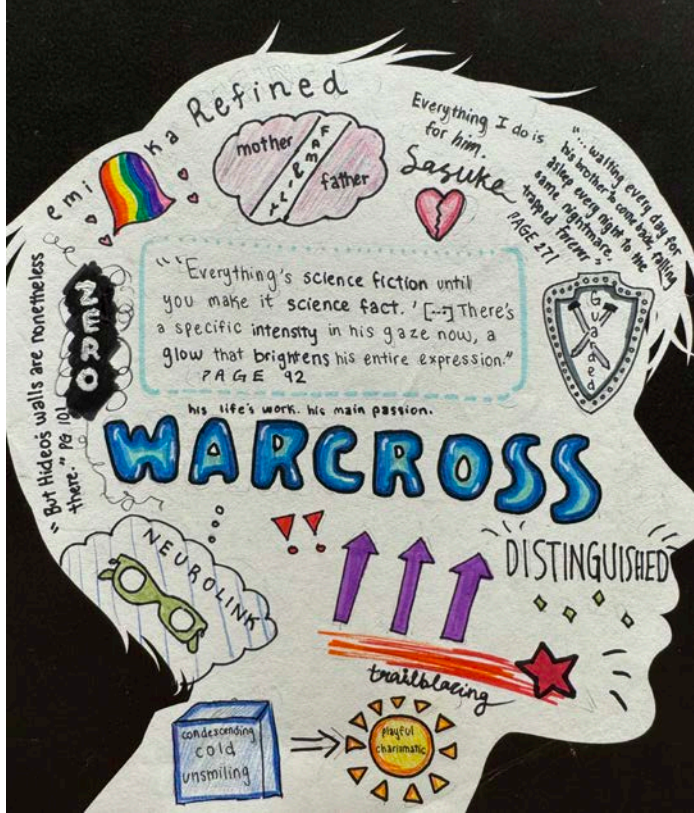 Refined
emika
mother
FAMILY
father
Everything I do is
for him.
Sasuke
"... waiting every day for
his brother to come back, falling
asleep every night to the
same nightmare,
trapped forever."
PAGE 271
"But Hideo's walls are nonetheless
there." PG 101
ZERO
"'Everything's science fiction until
you make it science fact.' [...] There's
a specific intensity in his gaze now, a
glow that brightens his entire expression."
PAGE 92
Guarded
his life's work. his main passion.
WARCROSS
NEUROLINK
!!
DISTINGUISHED
trailblazing
condescending
cold
unsmiling
playful
charismatic